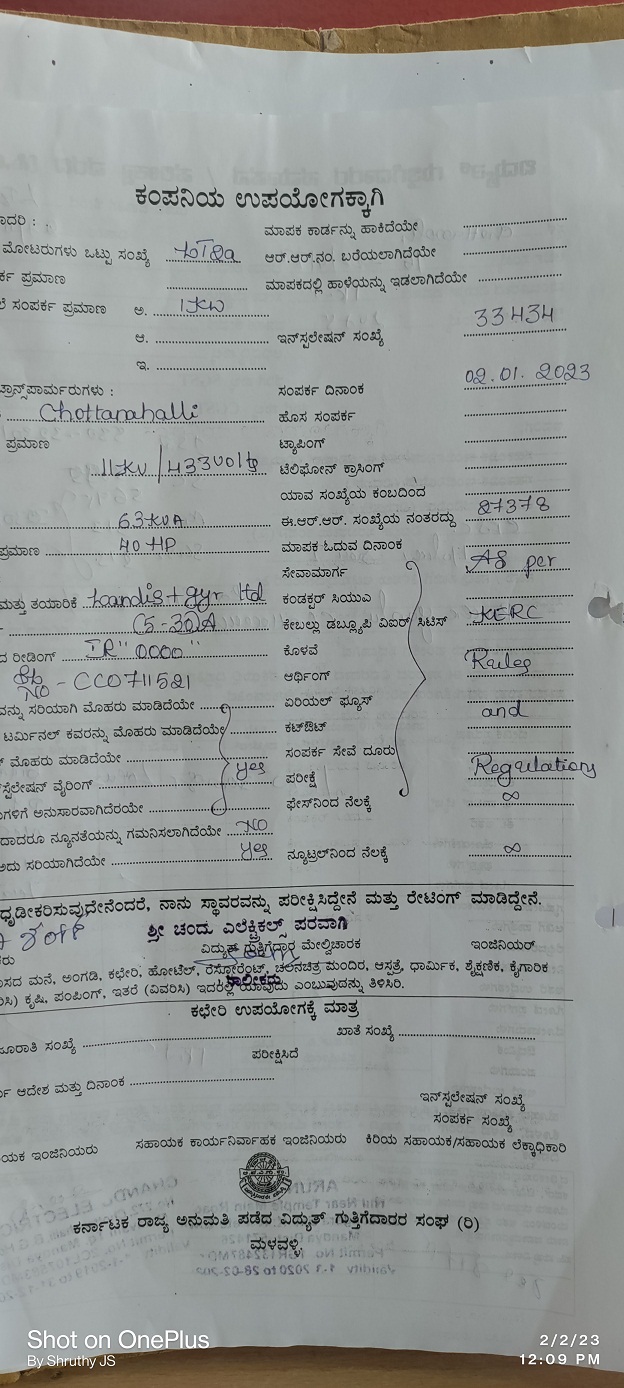 ಕಂಪನಿಯ ಉಪಯೋಗಕ್ಕಾಗಿ
ಮಾಪಕ ಕಾರ್ಡನ್ನು ಹಾಕಿದೆಯೇ
ಮೋಟರುಗಳು ಒಟ್ಟು ಸಂಖ್ಯೆ ಆರ್.ಆರ್.ನಂ. ಬರೆಯಲಾಗಿದೆಯೇ
ಪ್ರಮಾಣ ಮಾಪಕದಲ್ಲಿ ಹಾಳೆಯನ್ನು ಇಡಲಾಗಿದೆಯೇ
ಸಂಪರ್ಕ ಪ್ರಮಾಣ ಅ. 1KW
ಆ. ಇನ್‌ಸ್ಟಲೇಷನ್ ಸಂಖ್ಯೆ 33434
ಇ.
ಟ್ರಾನ್ಸ್‌ಪಾರ್ಮರುಗಳು : ಸಂಪರ್ಕ ದಿನಾಂಕ 02.01.2023
Chottanahalli ಹೊಸ ಸಂಪರ್ಕ
ಪ್ರಮಾಣ ಟ್ಯಾಪಿಂಗ್
11KV/433Volts ಟೆಲಿಫೋನ್ ಕ್ರಾಸಿಂಗ್
ಯಾವ ಸಂಖ್ಯೆಯ ಕಂಬದಿಂದ
63KVA ಈ.ಆರ್.ಆರ್. ಸಂಖ್ಯೆಯ ನಂತರದ್ದು 27378
ಪ್ರಮಾಣ 40 HP ಮಾಪಕ ಓದುವ ದಿನಾಂಕ
ಸೇವಾಮಾರ್ಗ As per
ಮತ್ತು ತಯಾರಿಕೆ Landis+gyr ltd ಕಂಡಕ್ಟರ್ ಸಿಯುಎ
C5-30)A ಕೇಬಲ್ಲು ಡಬ್ಲ್ಯೂಪಿ ವಿಐರ್ ಸಿಟಿಸ್ KERC
ರೀಡಿಂಗ್ IR "0000" ಕೊಳವೆ
Rules
NO - CC0711521 ಆರ್ಥಿಂಗ್
ಸರಿಯಾಗಿ ಮೊಹರು ಮಾಡಿದೆಯೇ ಏರಿಯಲ್ ಫ್ಯೂಸ್ and
ಟರ್ಮಿನಲ್ ಕವರನ್ನು ಮೊಹರು ಮಾಡಿದೆಯೇ ಕಟ್‌ಔಟ್
ಮೊಹರು ಮಾಡಿದೆಯೇ ಸಂಪರ್ಕ ಸೇವೆ ದೂರು
ವೈರಿಂಗ್ yes ಪರೀಕ್ಷೆ Regulations
ಅನುಸಾರವಾಗಿದೆರಯೇ ಫೇಸ್‌ನಿಂದ ನೆಲಕ್ಕೆ ∞
ನ್ಯೂನತೆಯನ್ನು ಗಮನಿಸಲಾಗಿದೆಯೇ NO
ಅದು ಸರಿಯಾಗಿದೆಯೇ yes ನ್ಯೂಟ್ರಲ್‌ನಿಂದ ನೆಲಕ್ಕೆ ∞
ಧೃಡೀಕರಿಸುವುದೇನೆಂದರೆ, ನಾನು ಸ್ಥಾವರವನ್ನು ಪರೀಕ್ಷಿಸಿದ್ದೇನೆ ಮತ್ತು ರೇಟಿಂಗ್ ಮಾಡಿದ್ದೇನೆ.
ಶ್ರೀ ಚಂದು ಎಲೆಕ್ಟ್ರಿಕಲ್ಸ್ ಪರವಾಗಿ
ವಿದ್ಯುತ್ ಗುತ್ತಿಗೆದಾರ ಮೇಲ್ವಿಚಾರಕ ಇಂಜಿನಿಯರ್
ಮನೆ, ಅಂಗಡಿ, ಕಛೇರಿ, ಹೋಟೆಲ್, ರೆಸ್ಟೋರೆಂಟ್, ಚಲನಚಿತ್ರ ಮಂದಿರ, ಆಸ್ಪತ್ರೆ, ಧಾರ್ಮಿಕ, ಶೈಕ್ಷಣಿಕ, ಕೈಗಾರಿಕ
ಕೃಷಿ, ಪಂಪಿಂಗ್, ಇತರೆ (ವಿವರಿಸಿ) ಇದರಲ್ಲಿ ಯಾವುದು ಎಂಬುವುದನ್ನು ತಿಳಿಸಿರಿ.
ಮಾಲೀಕರು
ಕಛೇರಿ ಉಪಯೋಗಕ್ಕೆ ಮಾತ್ರ
ಸಂಖ್ಯೆ ಖಾತೆ ಸಂಖ್ಯೆ
ಪರೀಕ್ಷಿಸಿದೆ
ಆದೇಶ ಮತ್ತು ದಿನಾಂಕ
ಇನ್‌ಸ್ಟಲೇಷನ್ ಸಂಖ್ಯೆ
ಸಂಪರ್ಕ ಸಂಖ್ಯೆ
ಇಂಜಿನಿಯರು ಸಹಾಯಕ ಕಾರ್ಯನಿರ್ವಾಹಕ ಇಂಜಿನಿಯರು ಕಿರಿಯ ಸಹಾಯಕ/ಸಹಾಯಕ ಲೆಕ್ಕಾಧಿಕಾರಿ
ಕರ್ನಾಟಕ ರಾಜ್ಯ ಅನುಮತಿ ಪಡೆದ ವಿದ್ಯುತ್ ಗುತ್ತಿಗೆದಾರರ ಸಂಘ (ರಿ)
ಮಳವಳ್ಳಿ
Shot on OnePlus
By Shruthy JS
2/2/23
12:09 PM